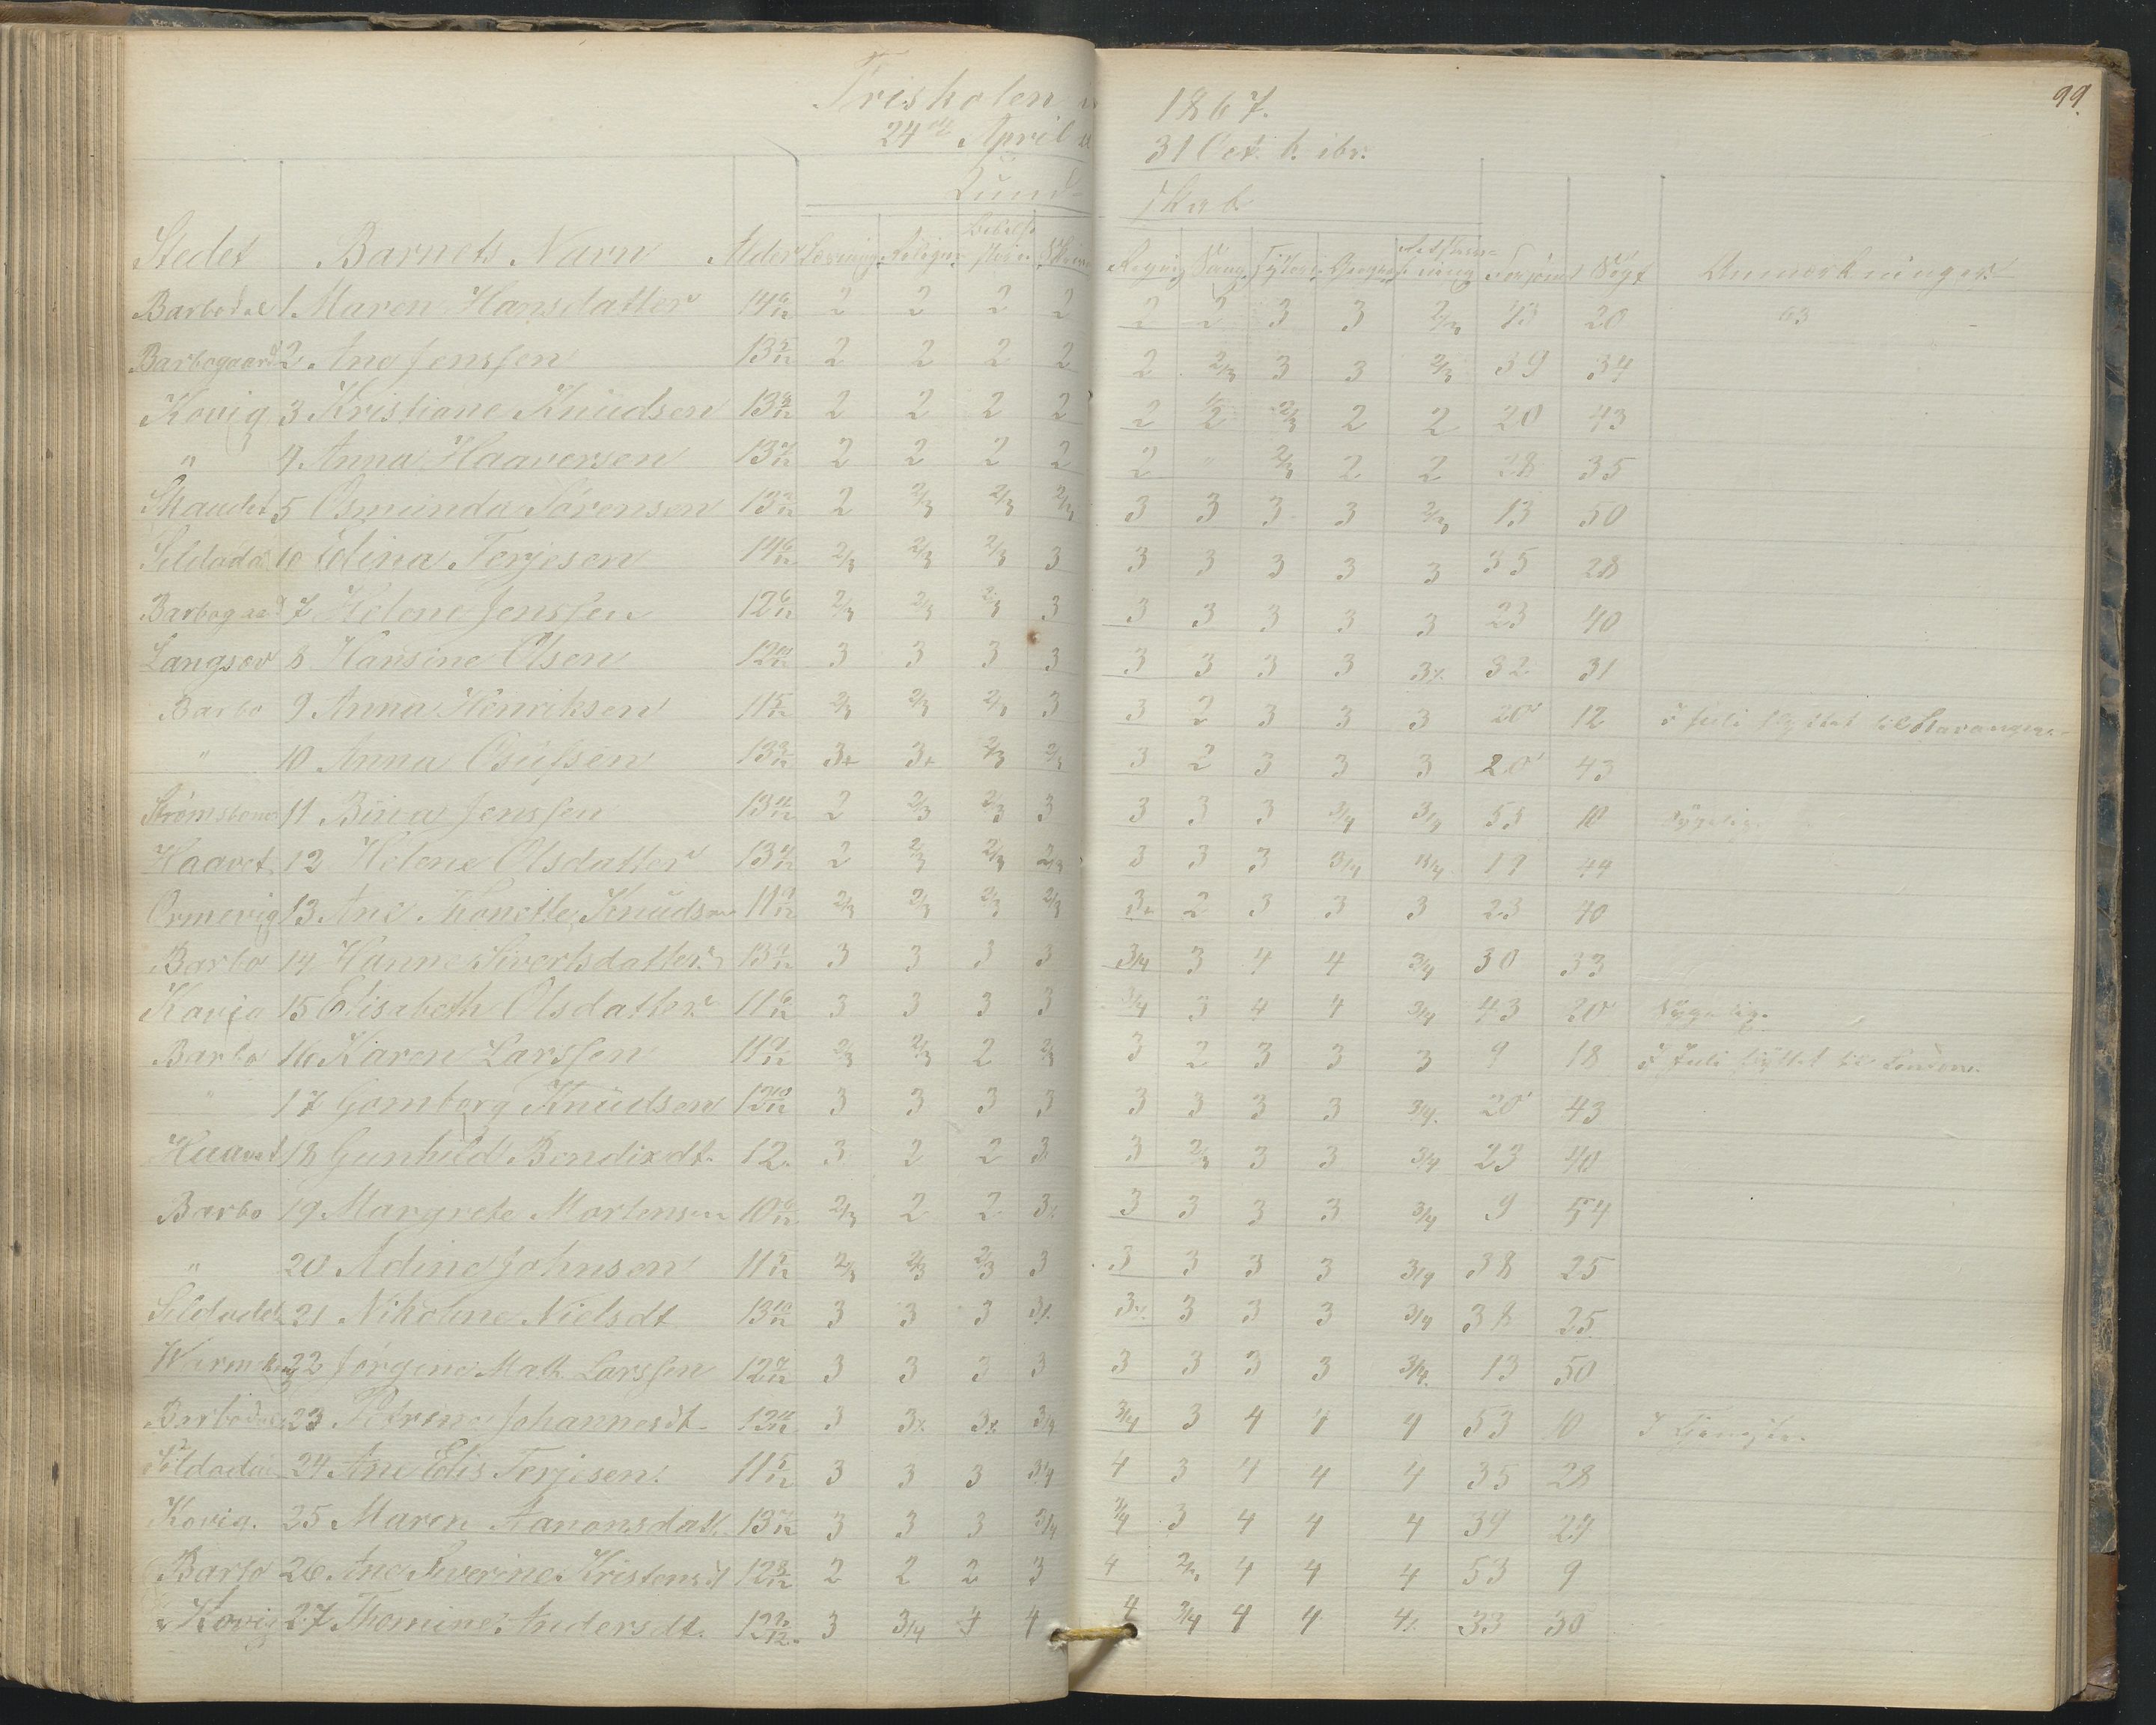 99.
Friskolen 1867.
24de April 31 Oct. h.
Kund- skab
Stedet Barnets Navn Alder Læsning Religion Bibelhistorie Skrivn Regning Sang Geograf Retskrivning Forsømt Søgt Anmærkninger
Barbodal 1. Maren Hansdatter 14 6/12 2 2 2 2 2 2 3 3 2/3 43 20 63
Barbogaard 2. Ane Jenssen 13 5/12 2 2 2 2 2 2/3 3 3 2/3 39 34
Kovig 3 Kristiane Knudsen 13 8/12 2 2 2 2 2 1/2 2/3 2 2 20 43
" 4. Anna Haaversen 13 7/12 2 2 2 2 2 " 2/3 2 2 28 35
5 Osmunda Sörensen 13 2 2/3 2/3 2/3 3 3 3 3 2/3 13 50
6 Elina Terjesen 14 6/12 2/3 2/3 2/3 3 3 3 3 3 3 35 28
7 Helene Jenssen 12 6/12 2/3 2/3 2/3 3 3 3 3 3 3 23 40
Langsæv 8 Hansine Olsen 12 10/12 3 3 3 3 3 3 3 3 3% 32 31
Barbo 9 Anna Henriksen 11 5/12 2/3 2/3 2/3 3 3 2 3 3 3 20 12 i Juli flyttet til Stavanger
" 10 Anna Osufsen 13 3/12 3+ 3+ 2/3 2/3 3 2 3 3 3 20 43
Strömsbone 11 Bina Jenssen 13 11/12 2 2/3 2/3 3 3 3 3 3/4 3/4 53 10 Sygelig
Haavet 12 Helene Olsdatter 13 2 2/3 2/3 2/3 3 3 3 3/4 3/4 49
Ormevig 13 Ane Tonette Knudsen 11 9/12 2/3 2/3 2/3 2/3 3+ 2 3 3 3 23 40
Barbo 14 Hanne Sivertsdatter 13 3 3 3 3 3/4 3 4 4 3/4 30 33
15 Elisabeth Olsdatter 11 6/12 3 3 3 3 3/4 3 4 4 3/4 43 20 Sygelig.
Barbo 16 Karen Larssen 11 9/12 2/3 2/3 2 2/3 3 2 3 3 3 9 18 i Juli flyttet til
" 17 Gomborg Knudsen 12 10/12 3 3 3 3 3 3 3 3 3/4. 20 43
Haavet 18 Gunhild Bendixdt. 12. 3 2 2 3 3 2/3 3 3 3/4 23 40
Barbo 19 Margrete Mortensen 10 6/12 2/3 2 2 3% 3 3 3 3 3/4 9 54
" 20 Adine Johnsen 11 2/3 2/3 2/3 3 3 3 3 3 3/4 38 25
21 Nikoline Nielsdt 13 10/12 3 3 3 3% 3% 3 3 3 3/4 38 25
22 Jörgine Math. Larssen 12 3 3 3 3 3 3 3 3 3/4. 13 50
Barbodal 23 Petrine Johannesdt. 12 11/12 3 3% 3% 3/4 3/4 3 4 4 4 53 10
24 Ane Elis Terjesen. 11 5/12 3 3 3 3/4 4 3 4 4 4 35 28
Kovig. 25 Maren Aanonsdatt 13 3 3 3 3/4 3/4 3 4 4 4 39 24
Barbo 26 Ane Severine Kristensdt 12 8/12 2 2 2 3 4 2/3 4 4 4 53 9
Kovig 27 Thomine Andersdt. 12 3 3/4 4 4 4 3/4 4 4 4% 33 30